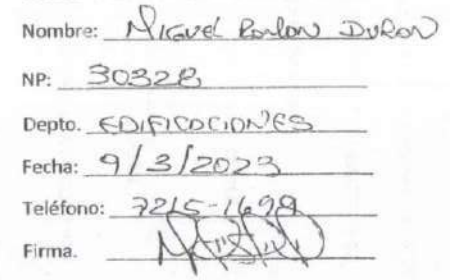 Nombre: Miguel Rolon Duron
NP: 30328
Depto. EDIFICACIONES
Fecha: 9/3/2023
Teléfono: 7215-1698
Firma.